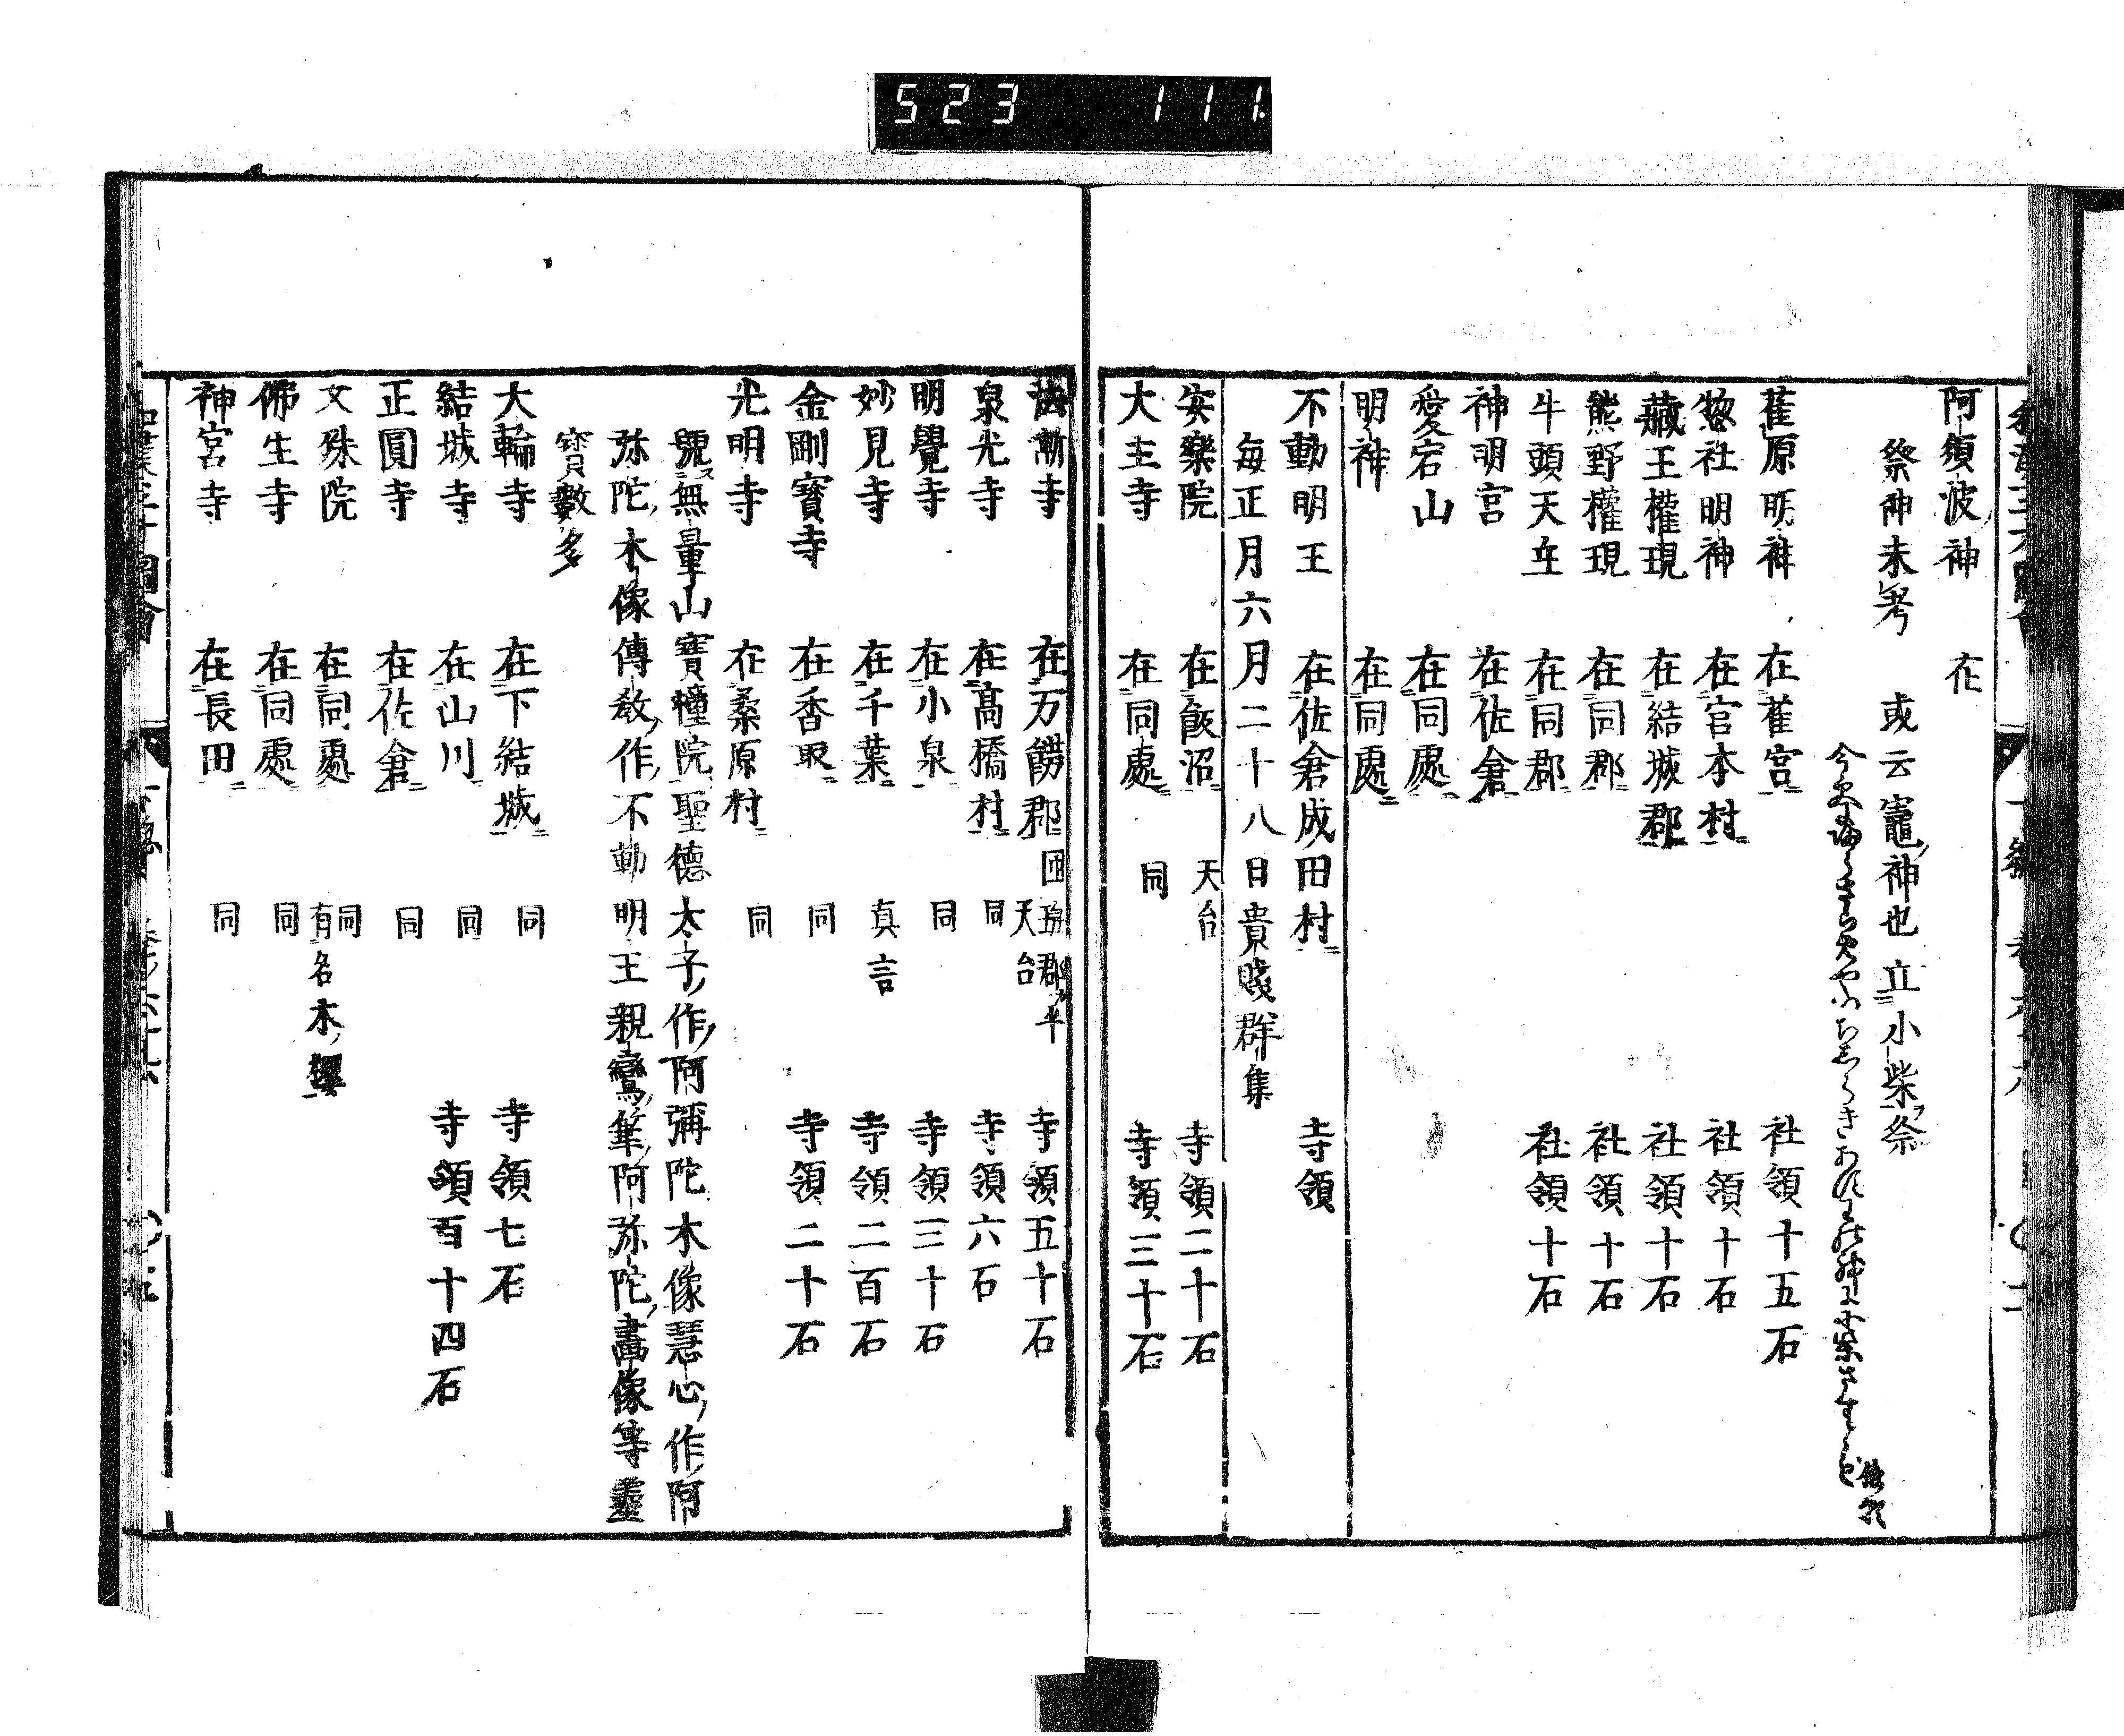 523 111.
阿須波神 在
祭神未考 或云竈神也立小柴祭
萑原明神 在萑宮 社領十五石
惣社明神 在宮本村 社領十石
藏王權現 在結城郡 社領十石
熊野權現 在同郡 社領十石
牛頭天王 在同郡 社領十石
神明宮 在佐倉
愛宕山 在同處
明神 在同處
不動明王 在佐倉成田村 寺領
每正月六月二十八日貴賤群集
安樂院 在飯沼 天台 寺領二十石
大主寺 在同處 同 寺領三十石
法漸寺 在万餝郡 天台 寺領五十石
泉光寺 在髙橋村 同 寺領六石
明覺寺 在小泉 同 寺領三十石
妙見寺 在千葉 真言 寺領二百石
金剛寳寺 在香取 同 寺領二十石
光明寺 在桑原村 同
號無量山寳幢院聖德太子作阿彌陀木像慧心作阿
弥陀木像傳敎作不動明王親鸞筆阿弥陀畵像等靈
寳數多
大輪寺 在下結城 同 寺領七石
結城寺 在山川 同 寺領百十四石
正圓寺 在佐倉 同
文殊院 在同處 同 有名木櫻
佛生寺 在同處 同
神宮寺 在長田 同